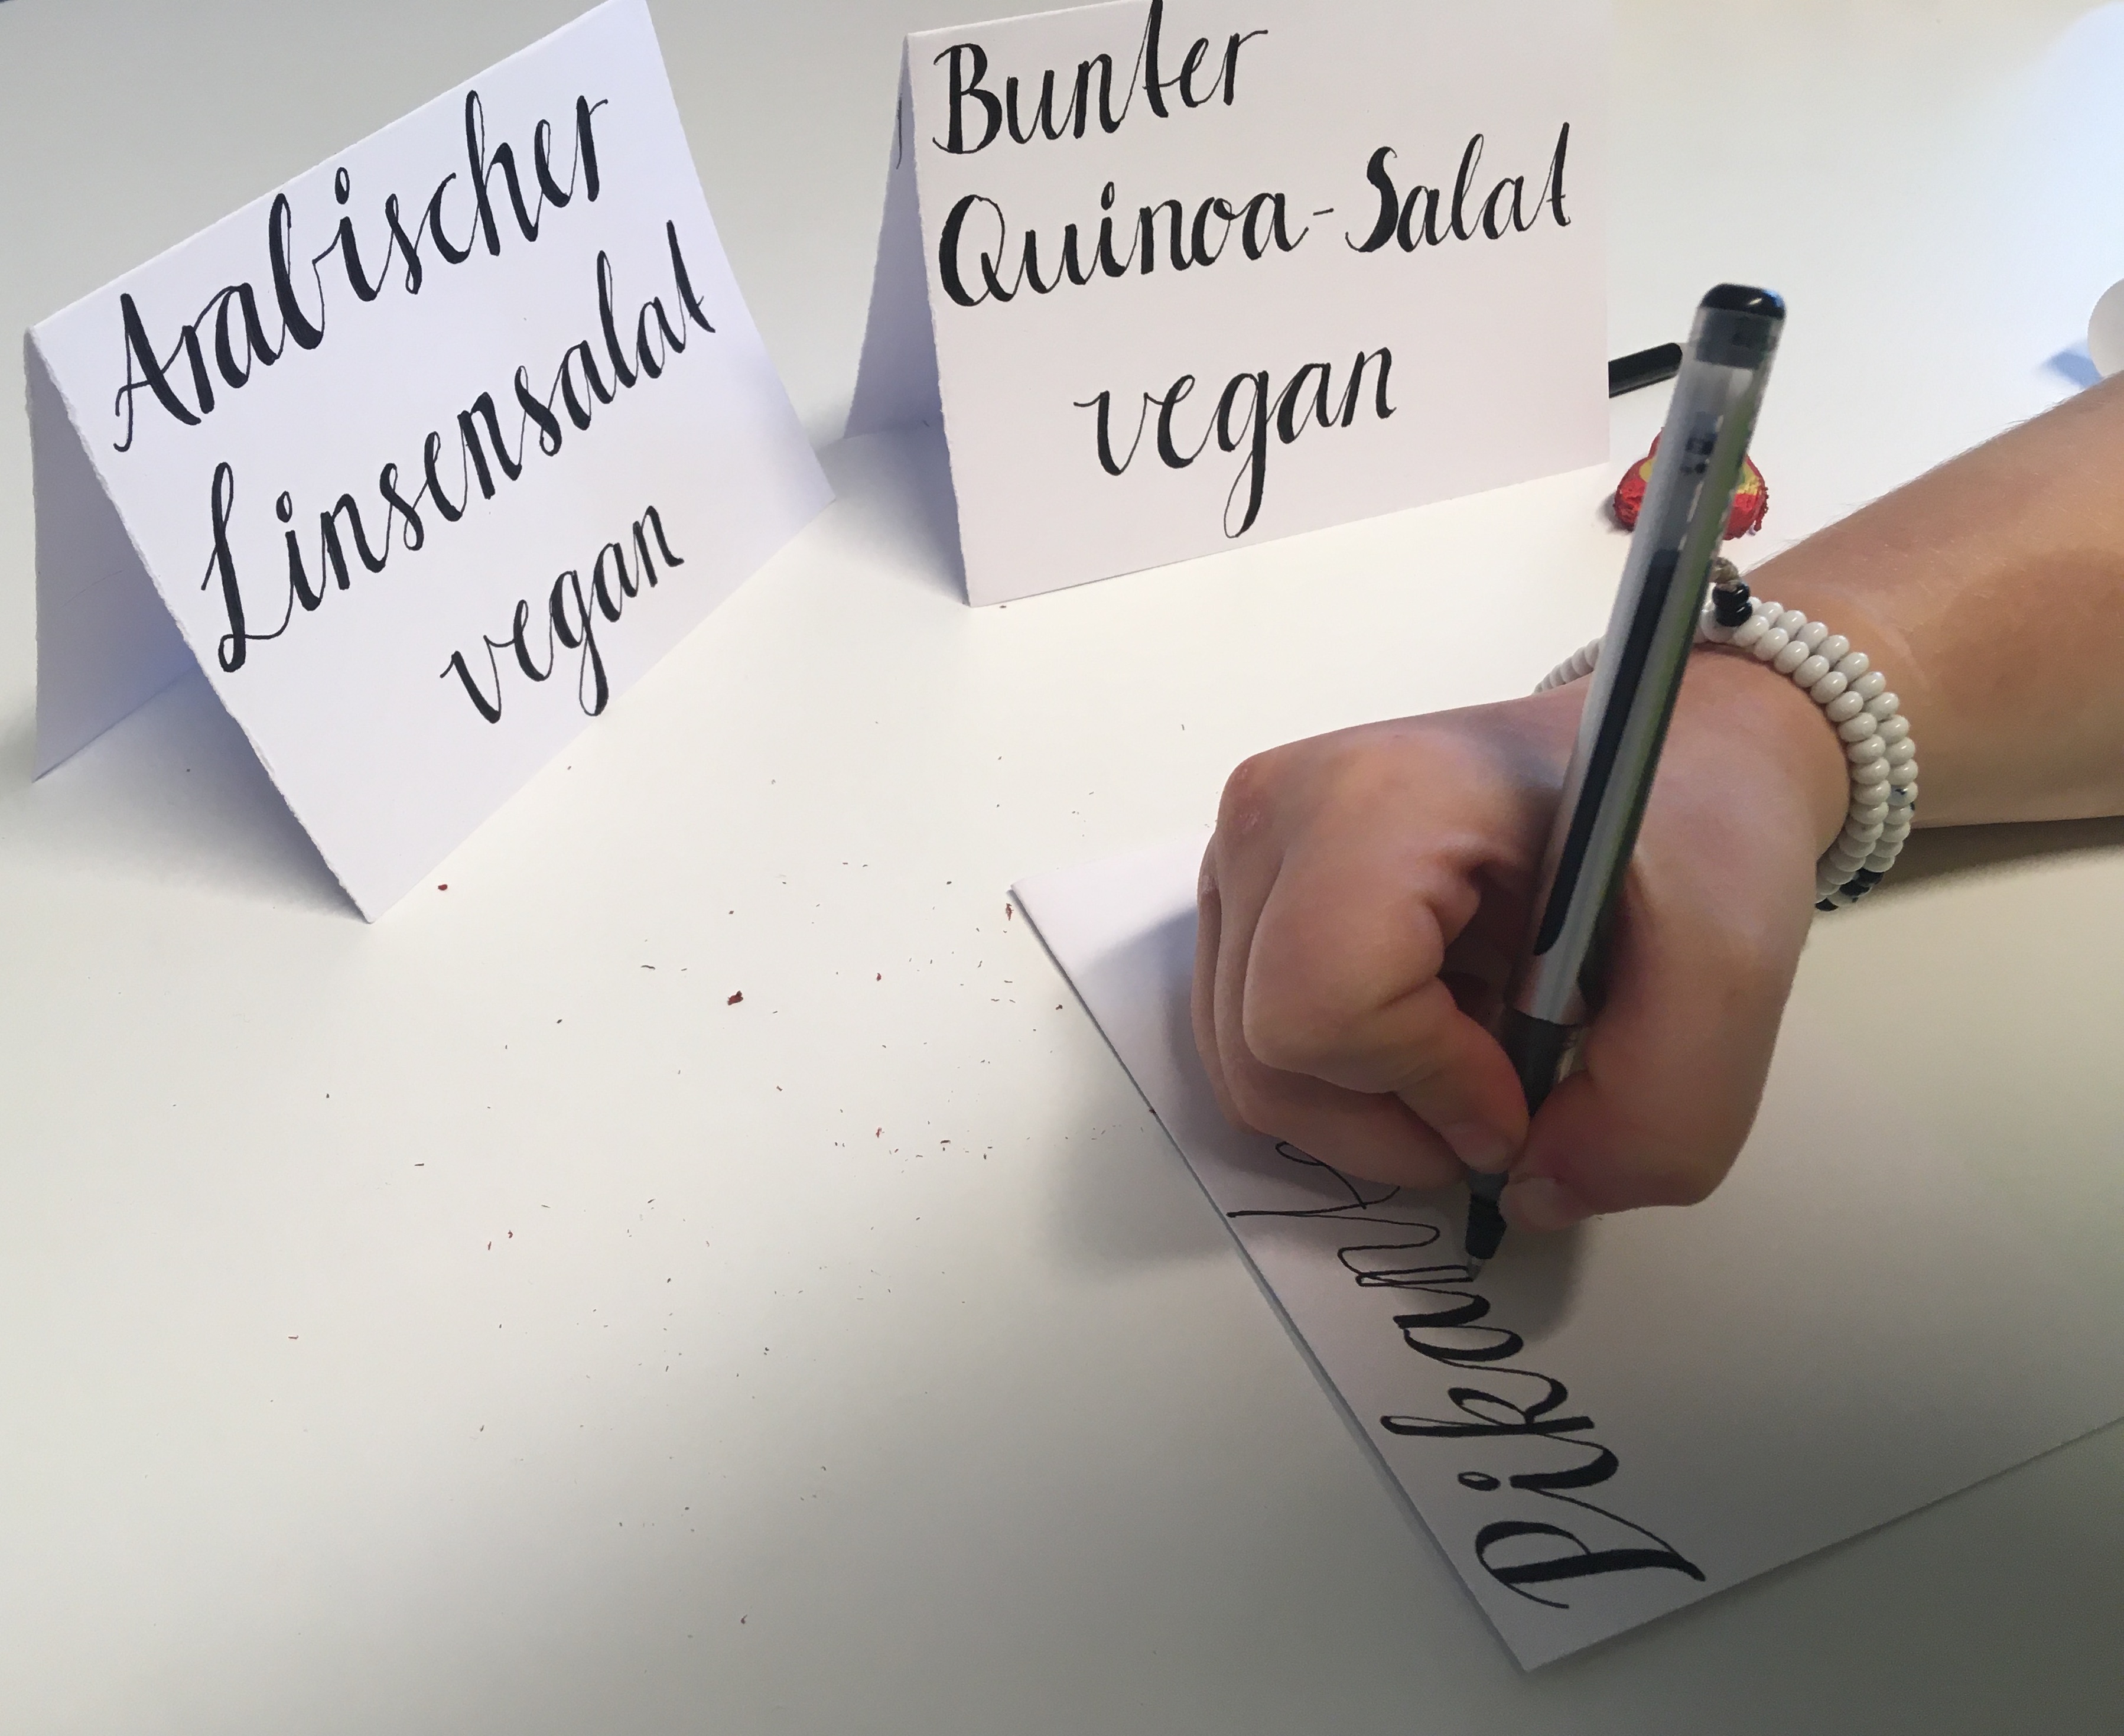 Arabischer
Linsensalat
vegan
Bunter
Quinoa-Salat
vegan
Pikant